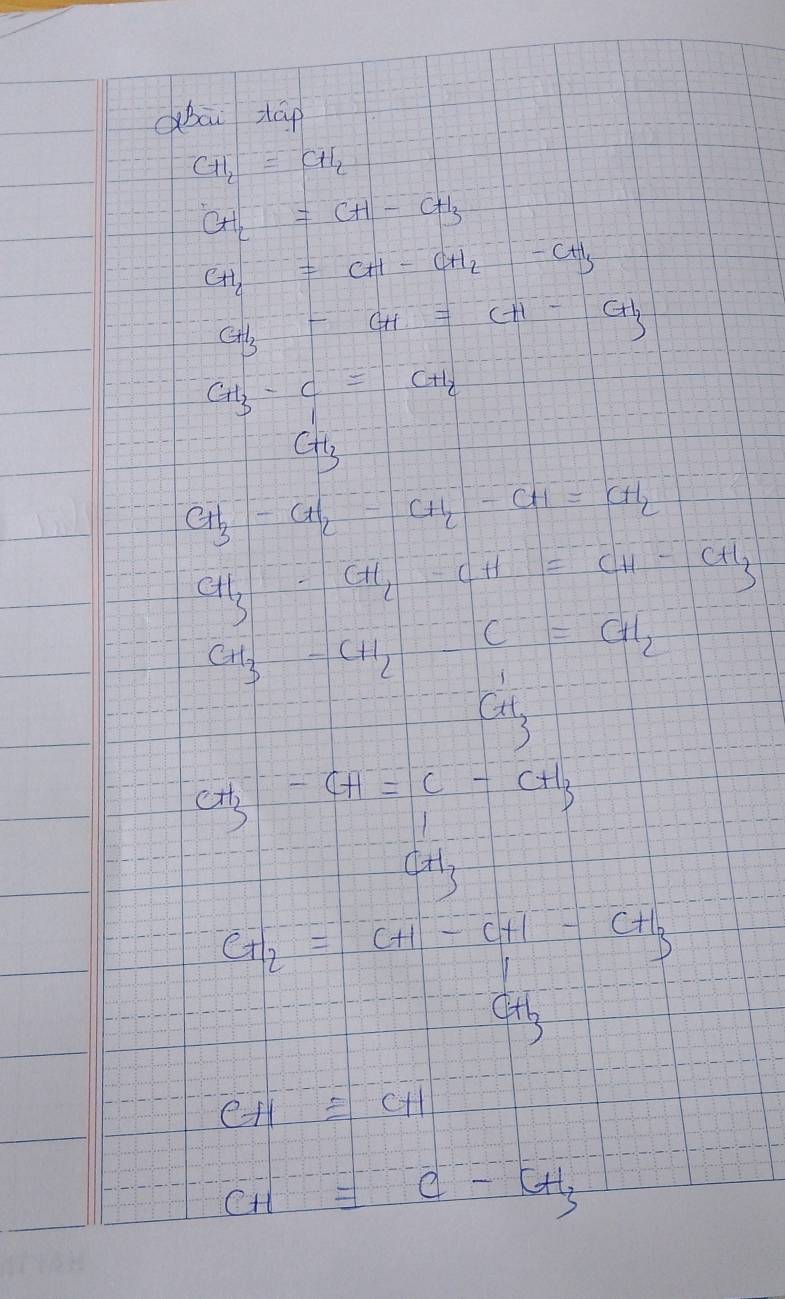 Bài tập
CH₂ = CH₂
CH₂ = CH - CH₃
CH₂ = CH - CH₂ - CH₃
CH₃ - CH = CH - CH₃
CH₃ - C = CH₂
|
CH₃
CH₃ - CH₂ - CH₂ - CH = CH₂
CH₃ - CH₂ - CH = CH - CH₃
CH₃ - CH₂ - C = CH₂
|
CH₃
CH₃ - CH = C - CH₃
|
CH₃
CH₂ = CH - CH - CH₃
|
CH₃
CH ≡ CH
CH ≡ C - CH₃